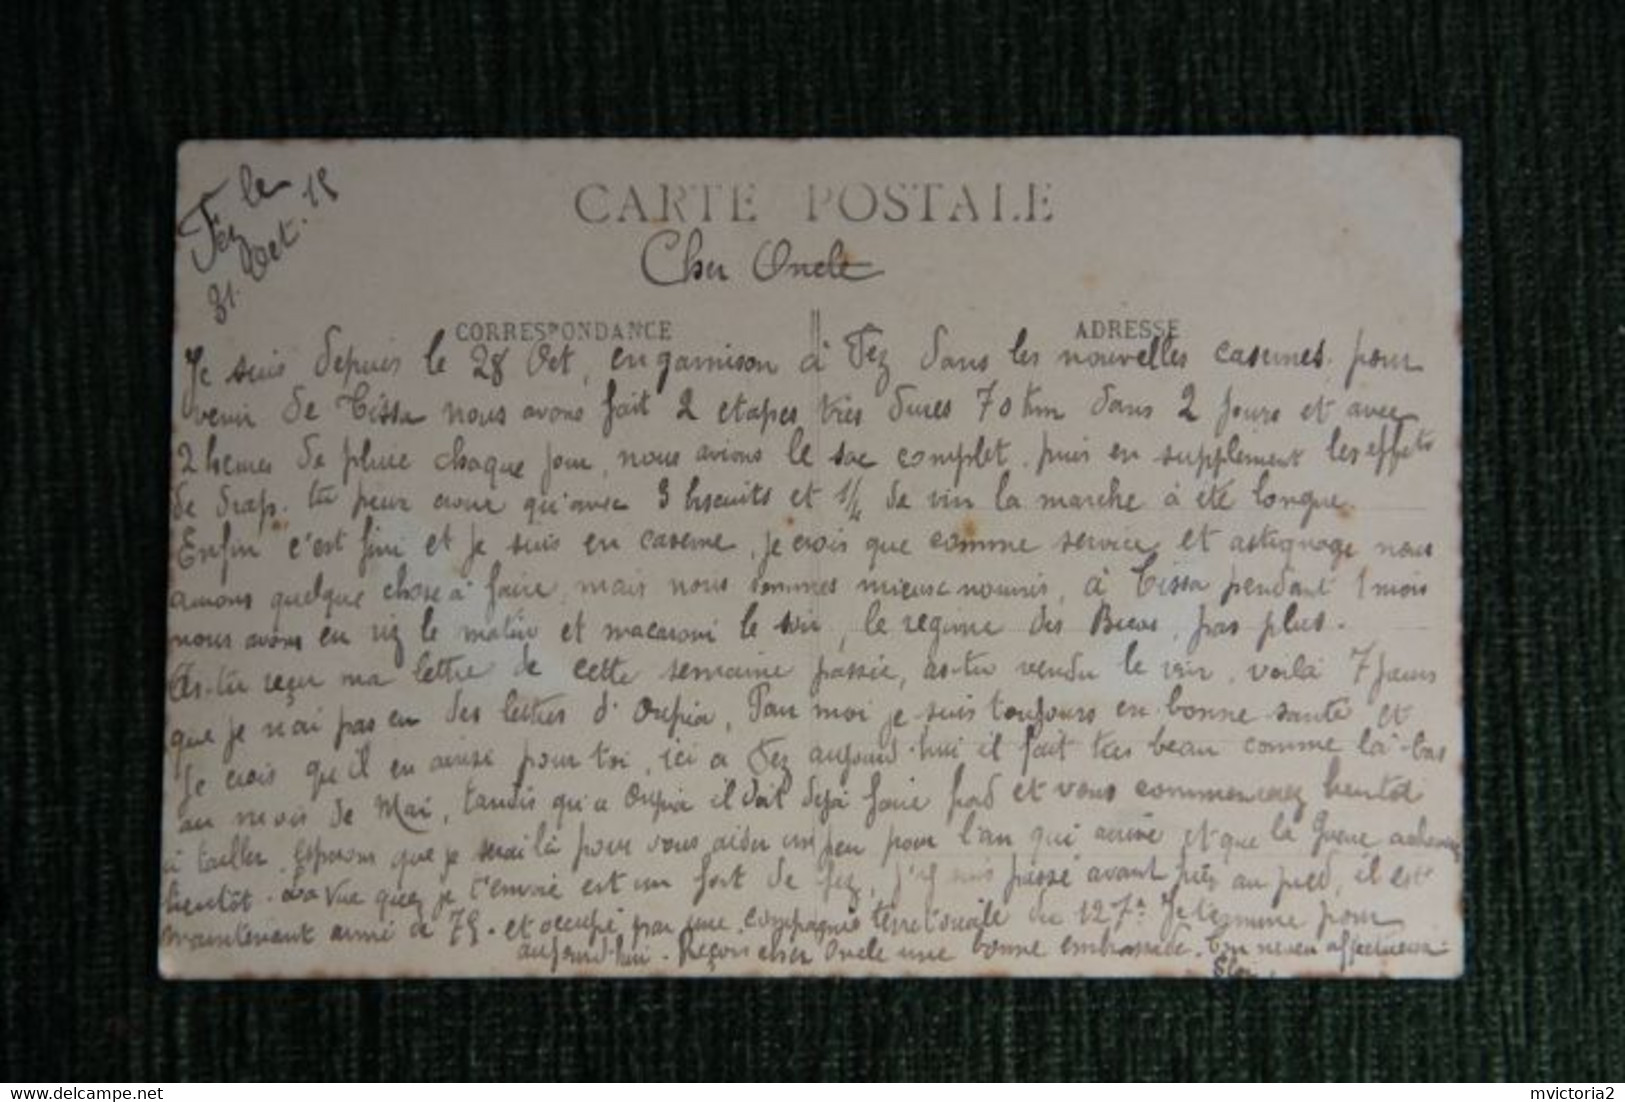 Fez le
31. Oct. 15
CARTE POSTALE
Cher Oncle
CORRESPONDANCE
ADRESSE
Je suis depuis le 28 Oct, en garnison à Fez dans les nouvelles casernes. pour
venir de Tissa nous avons fait 2 etapes très dures 70 km dans 2 jours et avec
2 heures de pluie chaque jour, nous avions le sac complet. puis en supplement les effets
de drap. tu peux croire qu'avec 3 biscuits et 1/4 de vin la marche à été longue.
Enfin c'est fini et je suis en caserne, je crois que comme service et astiquage nous
aurons quelque chose à faire, mais nous sommes mieux nourris, à Tissa pendant 1 mois
nous avons eu riz le matin et macaroni le soir, le regime des Bicos, pas plus.
As-tu reçu ma lettre de cette semaine passée, as-tu vendu le vin. voilà 7 jours
que je n'ai pas eu des lettres d'Oupia, Pour moi je suis toujours en bonne santé et
Je crois qu'il en ainsi pour toi, ici a Fez aujourd'hui il fait tres beau comme là-bas
au mois de Mai, tandis qu'a Oupia il doit dejà faire froid et vous commencerez bientot
à tailler. Esperons que je serai là pour vous aider un peu pour l'an qui arrive et que la Guerre
bientôt. La vue que je t'envoie est un fort de Fez, j'y suis passé avant près au pied, il est
maintenant armé de 75. et occupé par une compagnie territoriale du 127e Je termine pour
aujourd'hui. Reçois cher Oncle une bonne embrassade. Ton neveu
mvictoria2